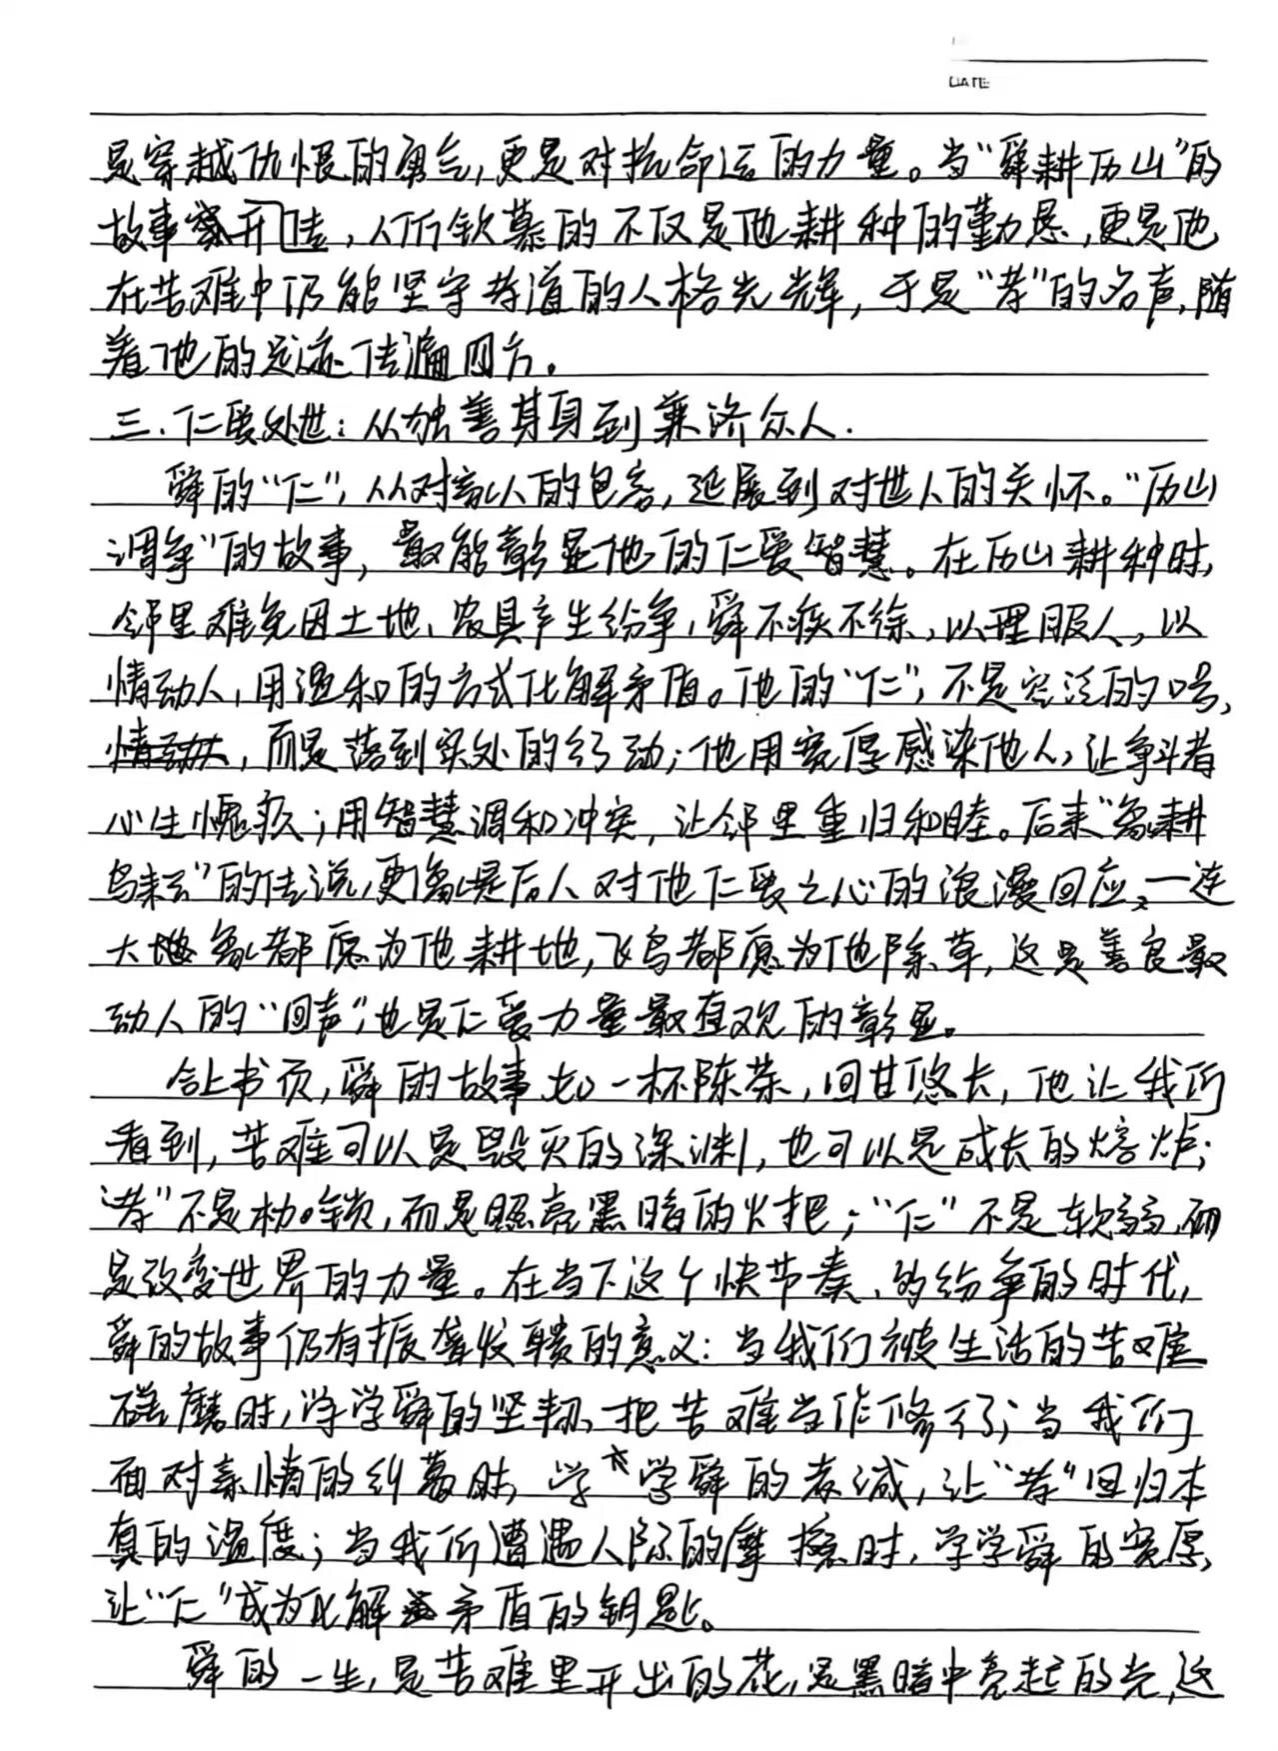 DATE
是穿越仇恨的勇气,更是对抗命运的力量。当“舜耕历山”的
故事传开去,人们钦慕的不仅是他耕种的勤恳,更是他
在苦难中仍能坚守孝道的人格光辉,于是“孝”的名声,随
着他的足迹传遍四方。
三.仁爱处世:从独善其身到兼济众人.
舜的“仁”,从对家人的包容,延展到对世人的关怀。“历山
调争”的故事,最能彰显他的仁爱智慧。在历山耕种时,
邻里难免因土地、农具产生纷争,舜不疾不徐,以理服人,以
情动人,用温和的方式化解矛盾。他的“仁”,不是空泛的口号,
,而是落到实处的行动;他用宽厚感染他人,让争斗者
心生愧疚;用智慧调和冲突,让邻里重归和睦。后来“象耕
鸟耘”的传说,更像是后人对他仁爱之心的浪漫回应,—连
大象都愿为他耕地,飞鸟都愿为他除草,这是善良最
动人的“回声”,也是仁爱力量最直观的彰显。
合上书页,舜的故事如一杯陈茶,回甘悠长,他让我们
看到,苦难可以是毁灭的深渊,也可以是成长的熔炉;
“孝”不是枷锁,而是照亮黑暗的火把;“仁”不是软弱,而
是改变世界的力量。在当下这个快节奏、的纷争的时代,
舜的故事仍有振聋发聩的意义:当我们被生活的苦难
磋磨时,学学舜的坚韧、把苦难当作修行;当我们
面对亲情的纠葛时,学学舜的孝诚,让“孝”回归本
真的温度;当我们遭遇人际的摩擦时,学学舜的宽厚,
让“仁”成为化解矛盾的钥匙。
舜的一生,是苦难里开出的花,是黑暗中亮起的光,这